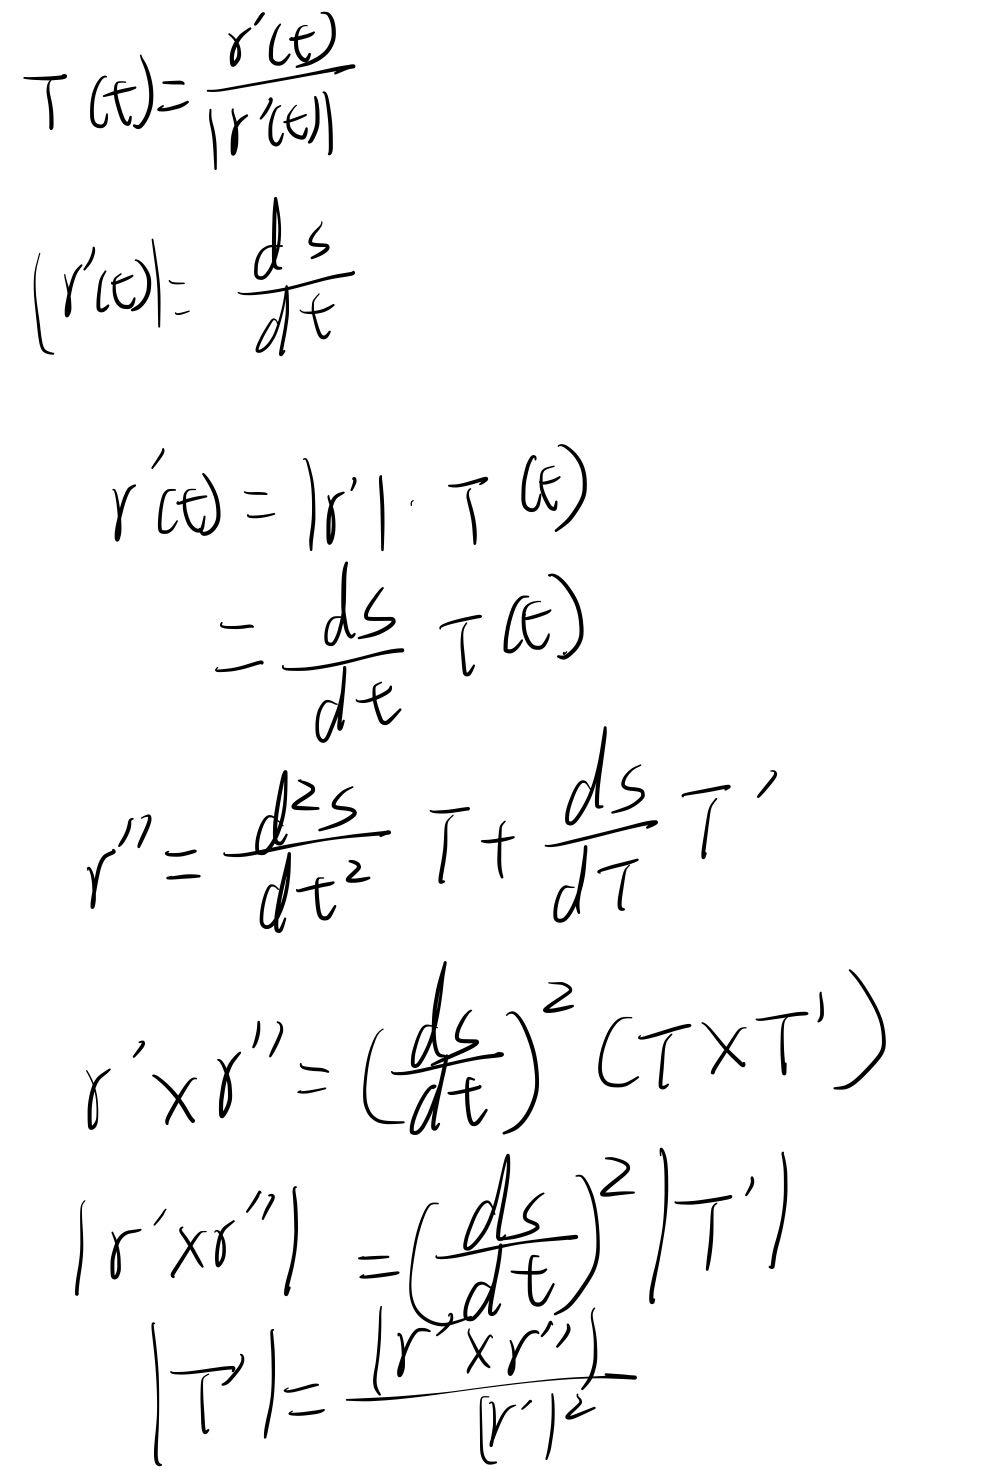 T(t) = r'(t) / |r'(t)|
|r'(t)| = ds / dt
r'(t) = |r'| · T(t)
= ds / dt T(t)
r'' = d²s / dt² T + ds / dT T'
r' × r'' = (ds / dt)² (T × T')
|r' × r''| = (ds / dt)² |T'|
|T'| = |r' × r''| / |r'|²